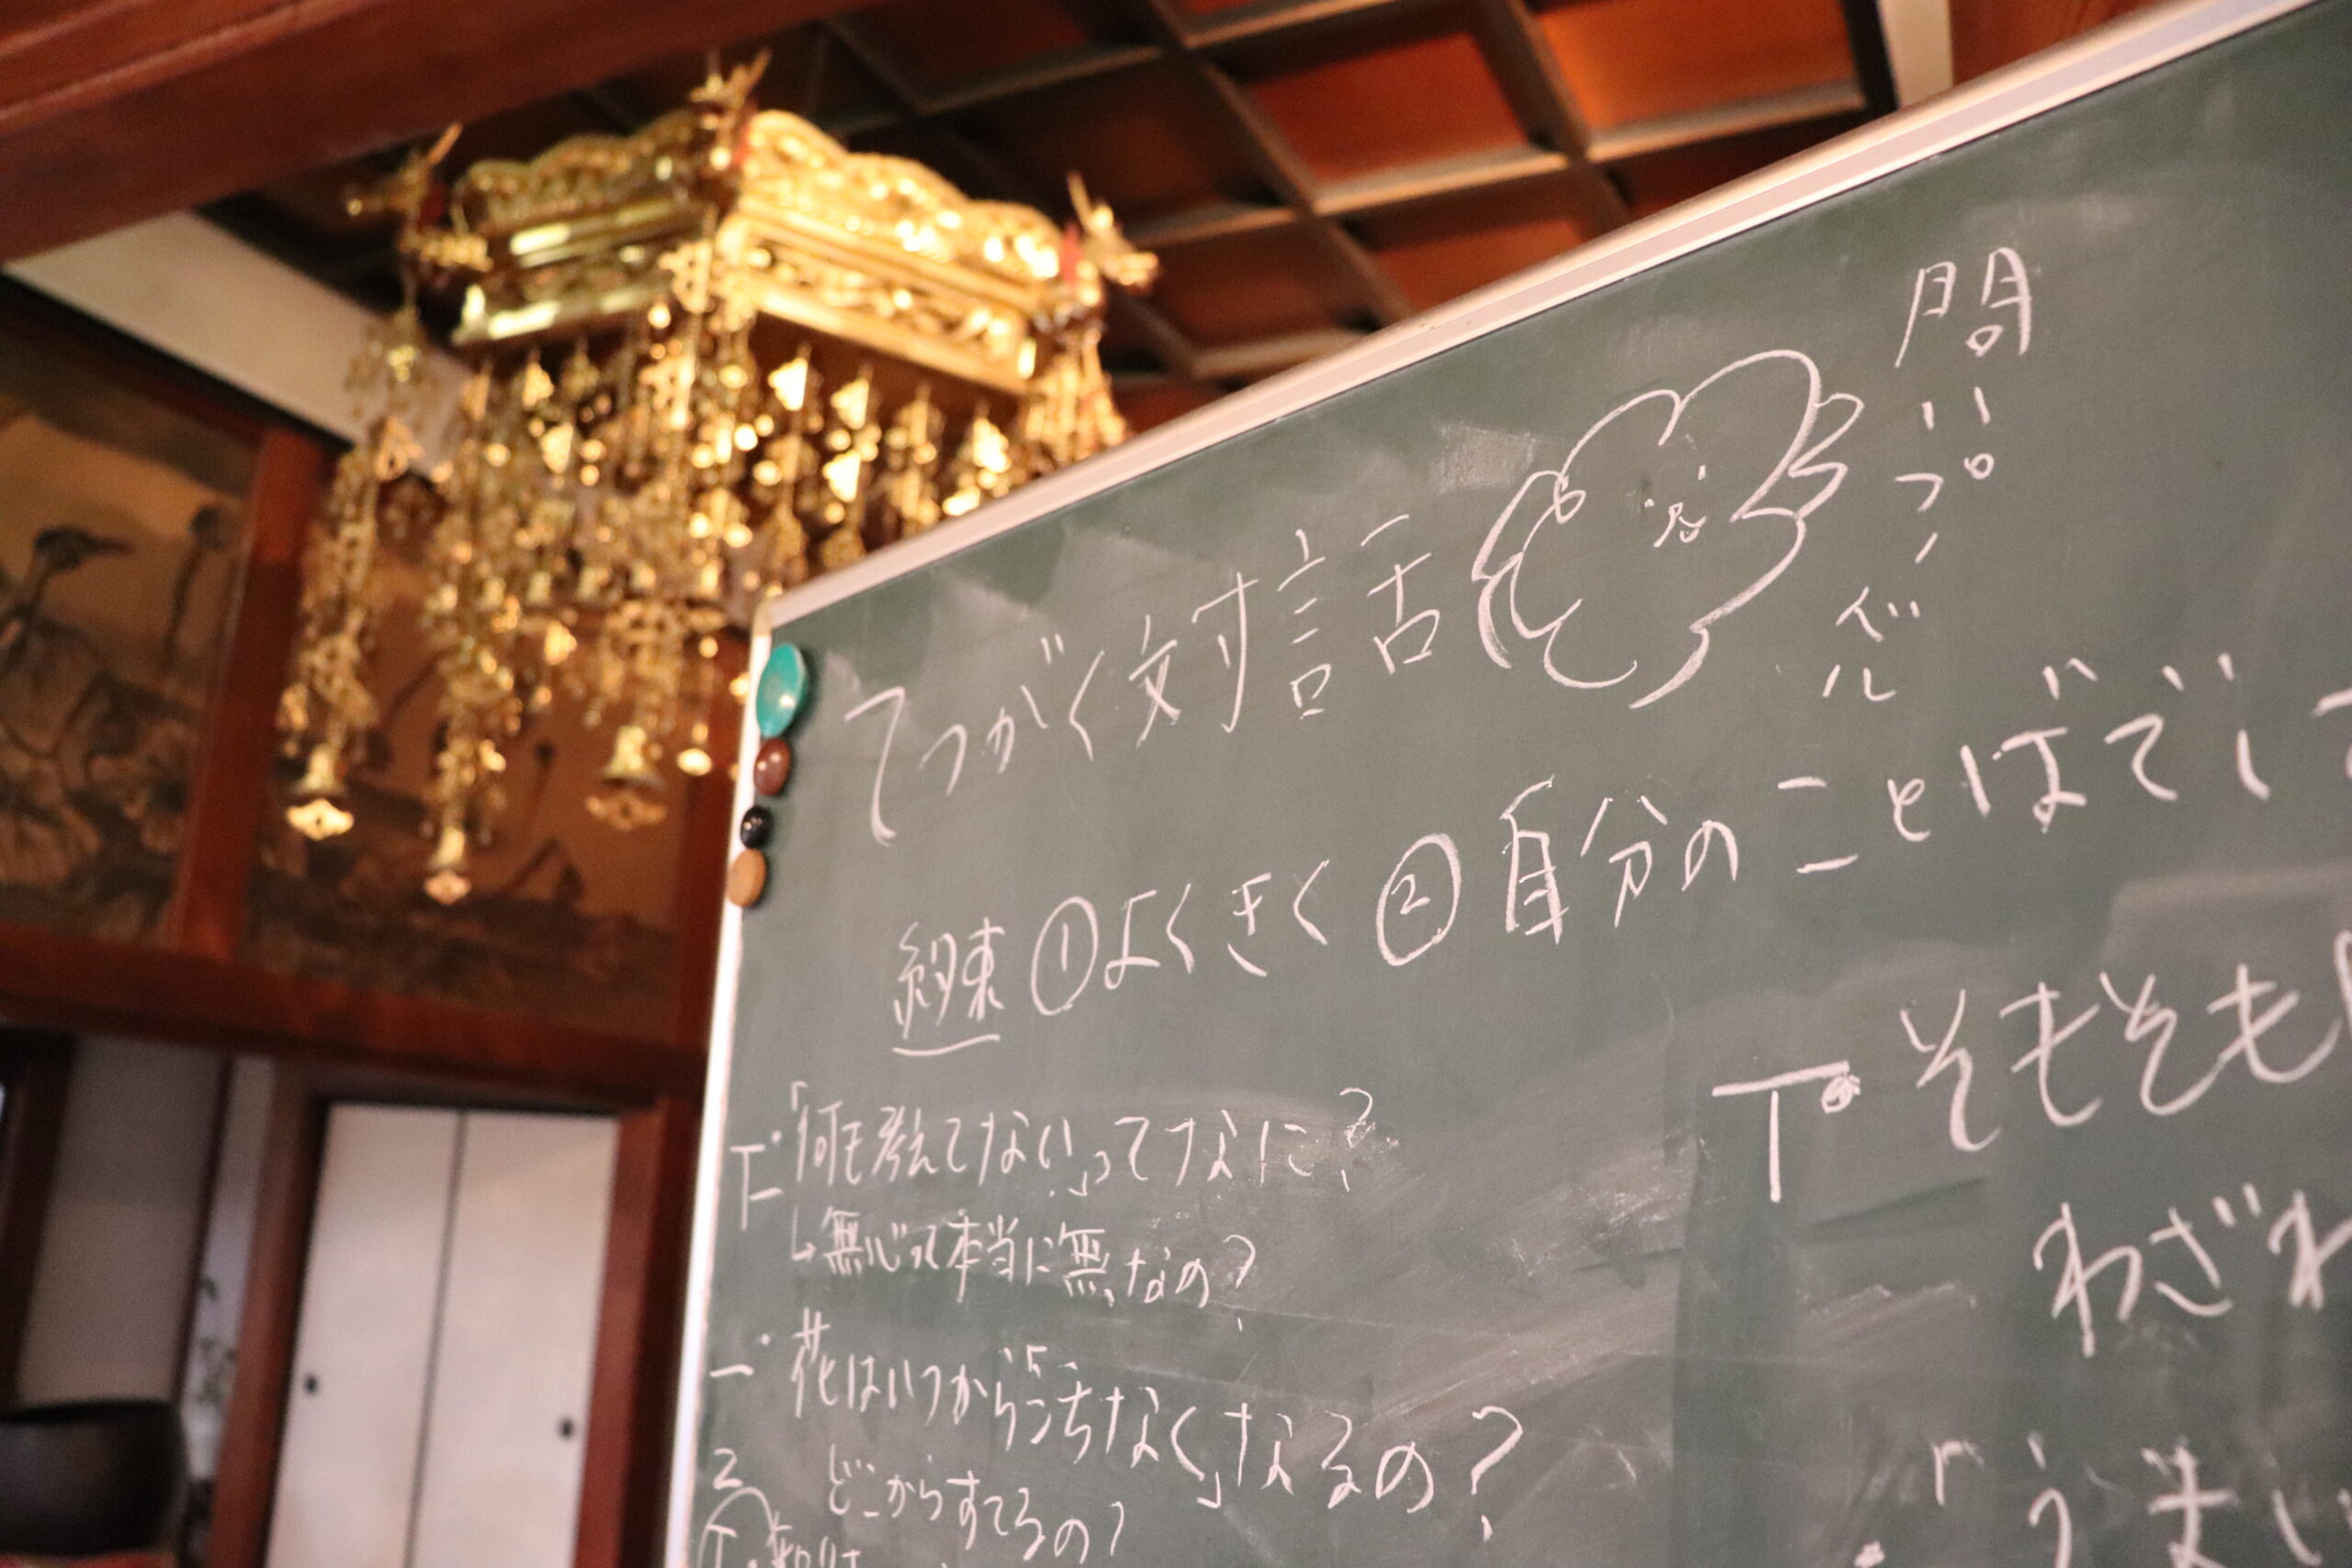 てつがく対話
問
練 ①よくきく ②自分のことばでし
「何も考えてない」ってなに?
↳無心って本当に無なの?
そもそも
わざわ
一・花はいつから「活 なくなるの?
どこからすてるの?
「うまい